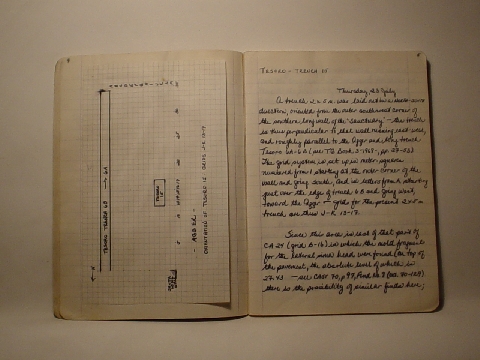 TESORO - TRENCH 15
Thursday 23 July
A trench 2 x 5 m. was laid out in a north-south
direction, oriented from the outer southwest corner of
the southern long wall of the "sanctuary" - the trench
is thus perpendicular to that wall running east-west,
and roughly parallel to the Agger and long trench
Tesoro 6A-6B
The grid system is set up in meter squares
numbered from 1 starting at the outer corner of the
wall and going south, and in letters from A starting
just over the edge of trench 6B and going west,
toward the Agger - grids for the present 2 x 5 m
trench are thus J-K 13-17.
Since this trench is west of that part of
CA 24 (grid B-16) in which the mold fragments
for the lateral and head were found (on top of
the pavement, the absolute level of which is
27.43 - see CASV 70, p. 97, Find No. 8
there is the possibility of similar finds here;
TESORO TRENCH 6B → 6A
TESORO 15
- AGGER -
ORIENTATION OF TESORO 15 GRIDS J-K 13-17